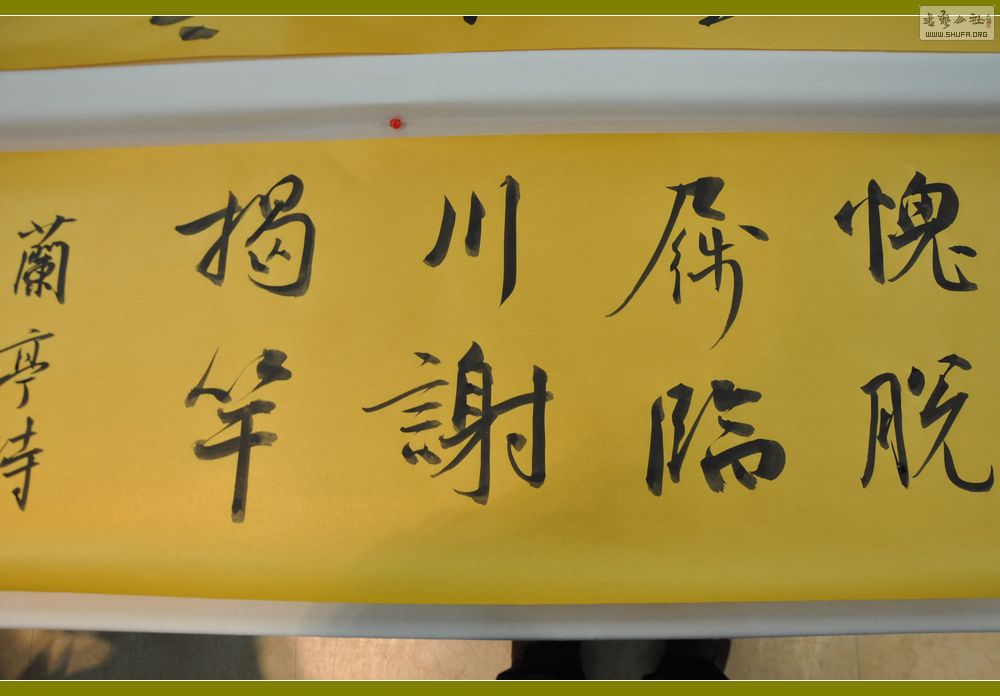 愧脫
屣臨
川謝
揭竿
蘭亭詩
書藝公社
WWW.SHUFA.ORG